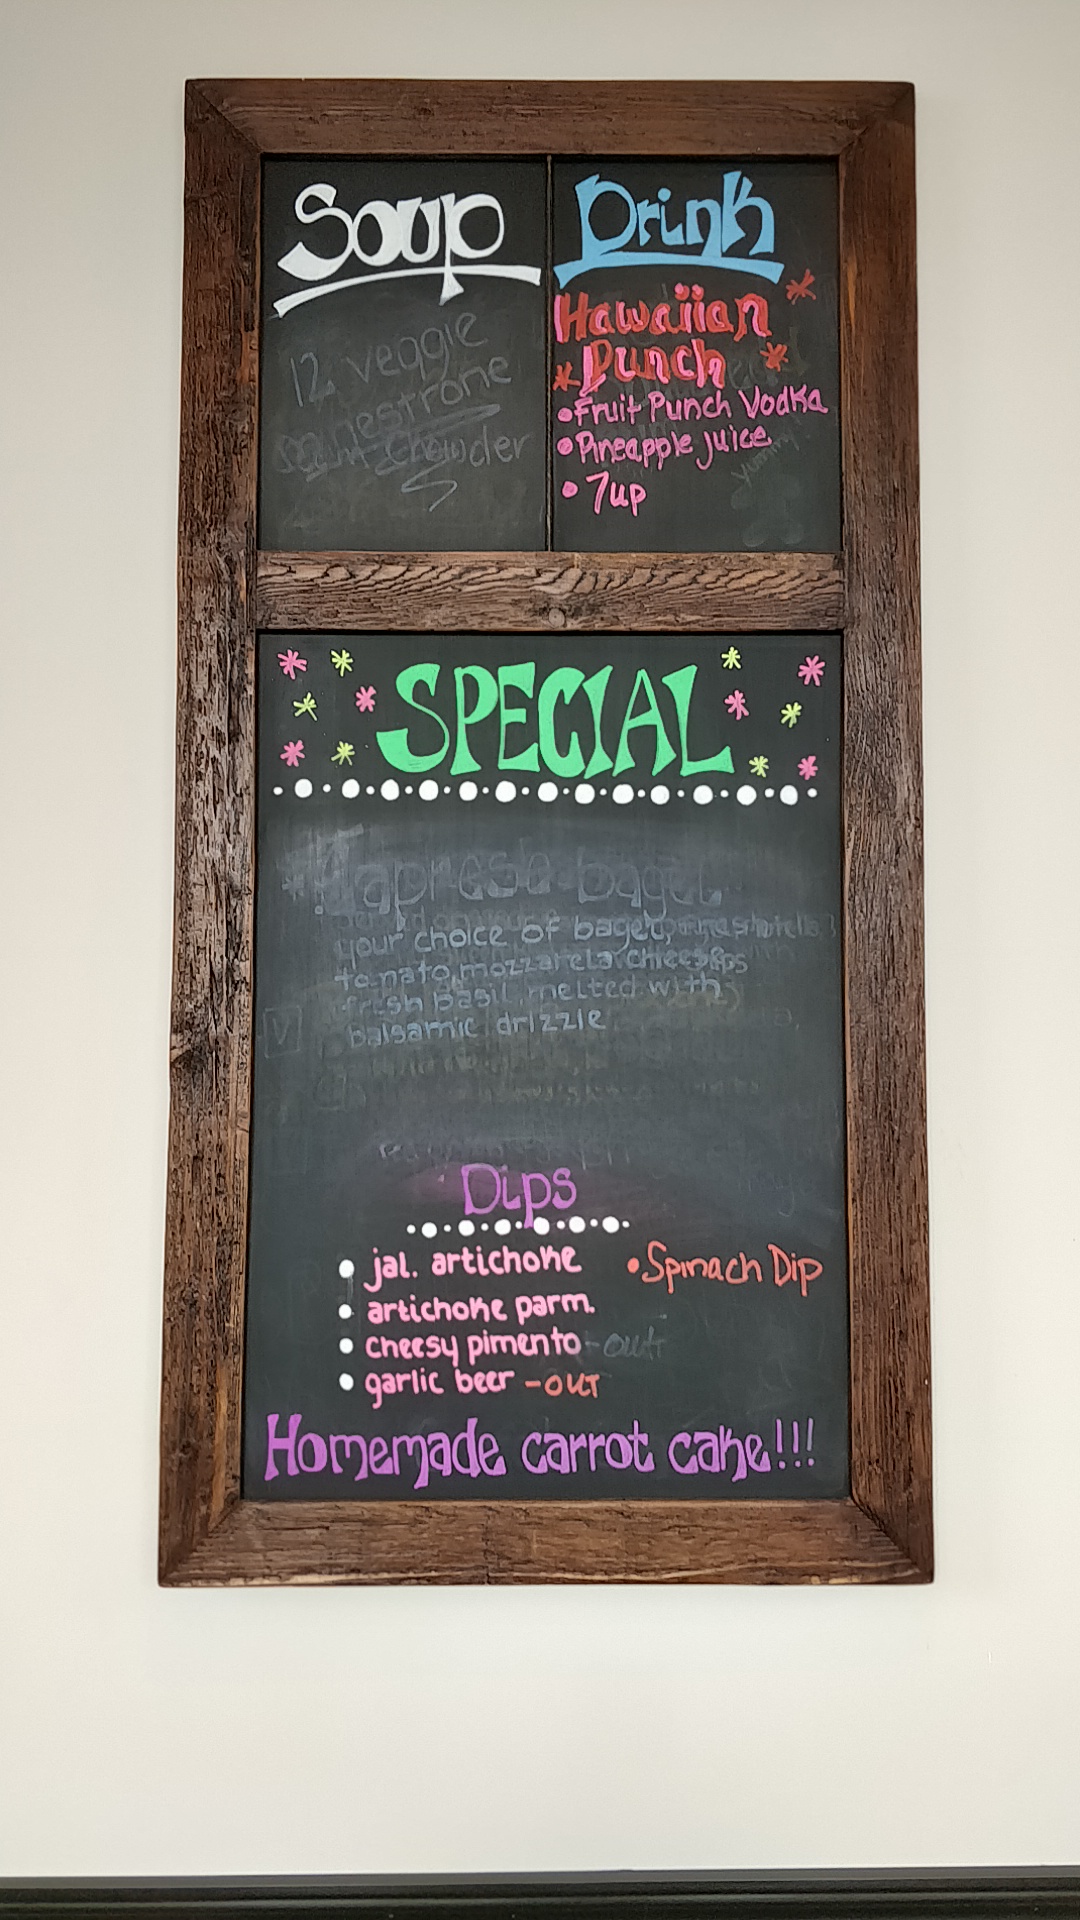 Soup
12 veggie
minestrone
clam chowder
Drink
Hawaiian
Punch
•Fruit Punch Vodka
•Pineapple juice
• 7up
yummy!
SPECIAL
Caprese bagel
your choice of bagel,
tomato, mozzarela cheese
fresh basil, melted with
balsamic drizzle
V
Dips
• jal. artichoke
• Spinach Dip
• artichoke parm.
• cheesy pimento -out
• garlic beer -out
Homemade carrot cake!!!